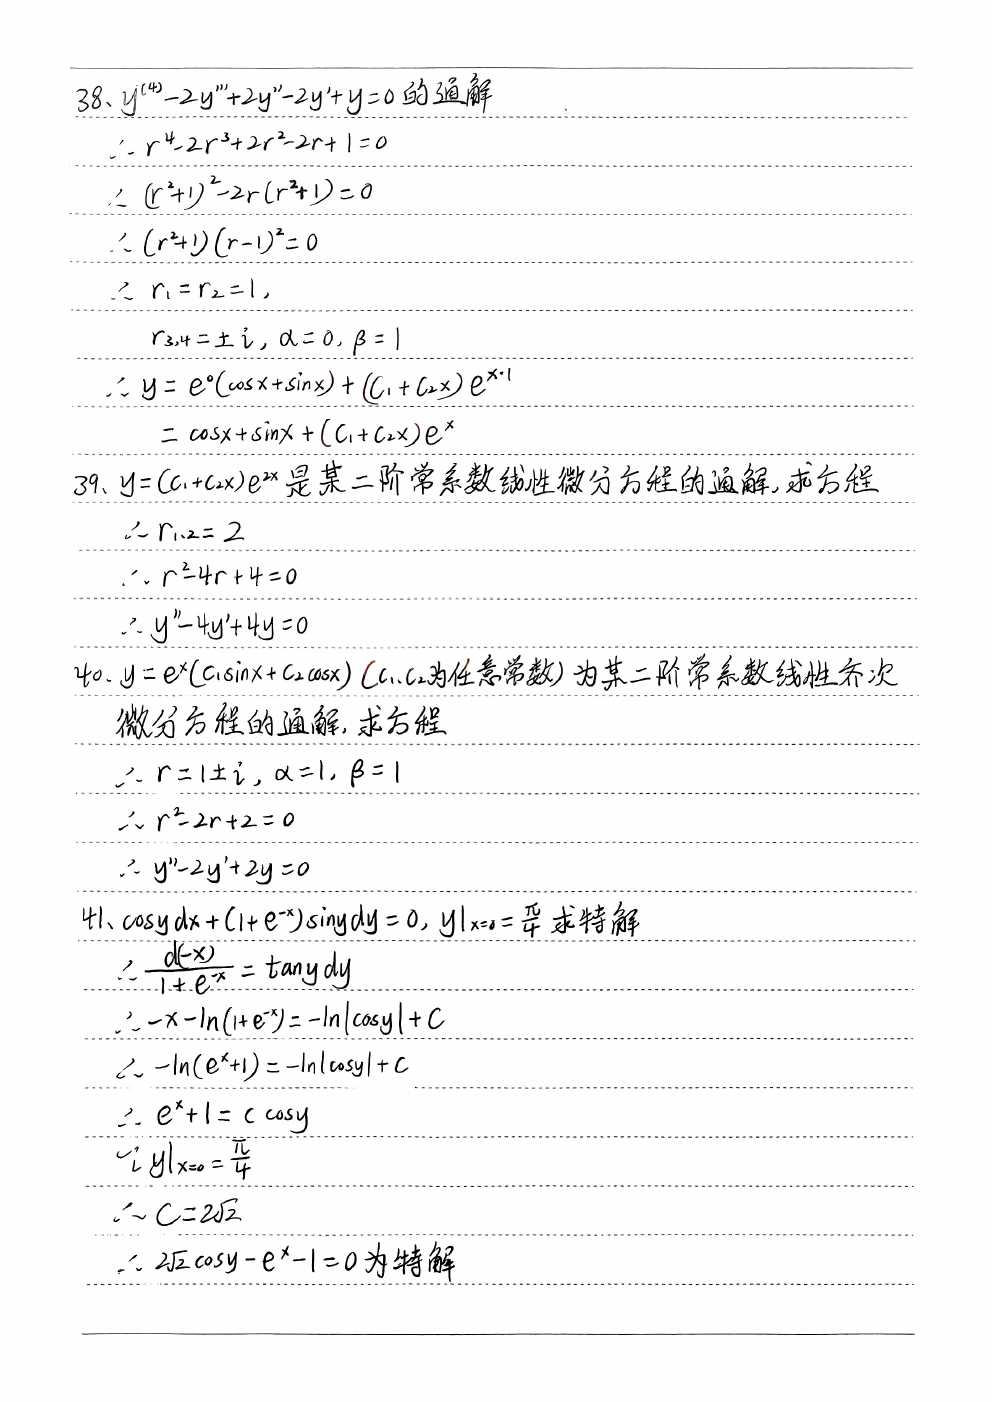 38、y⁽⁴⁾-2y'''+2y''-2y'+y=0的通解
∴ r⁴-2r³+2r²-2r+1=0
∴ (r²+1)²-2r(r²+1)=0
∴ (r²+1)(r-1)²=0
∴ r₁=r₂=1,
r₃,₄=±i, α=0, β=1
∴ y=e⁰(cosx+sinx)+(C₁+C₂x)e^{x·1}
= cosx+sinx+(C₁+C₂x)eˣ
39、y=(C₁+C₂x)e²ˣ是某二阶常系数线性微分方程的通解,求方程
∴ r₁、₂=2
∴ r²-4r+4=0
∴ y''-4y'+4y=0
40、y=eˣ(C₁sinx+C₂cosx)(C₁、C₂为任意常数)为某二阶常系数线性齐次
微分方程的通解,求方程
∴ r=1±i, α=1, β=1
∴ r²-2r+2=0
∴ y''-2y'+2y=0
41、cosydx+(1+e⁻ˣ)sinydy=0, y|ₓ₌₀=π/4 求特解
∴ d(-x)/(1+e⁻ˣ)=tanydy
∴ -x-ln(1+e⁻ˣ)=-ln|cosy|+C
∴ -ln(eˣ+1)=-ln|cosy|+C
∴ eˣ+1=C cosy
∵ y|ₓ₌₀=π/4
∴ C=2√2
∴ 2√2cosy-eˣ-1=0为特解